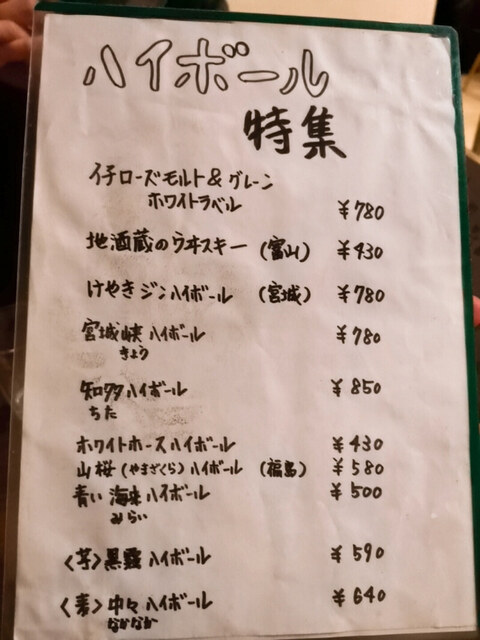 ハイボール
特集
イチローズモルト&グレーン
ホワイトラベル ¥780
地酒蔵のウヰスキー (富山) ¥430
けやきジンハイボール (宮城) ¥780
宮城峡ハイボール ¥780
きょう
知多ハイボール ¥850
ちた
ホワイトホースハイボール ¥430
山桜(やまざくら)ハイボール (福島) ¥580
青い海来ハイボール ¥500
みらい
〈芋〉黒霧ハイボール ¥590
〈麦〉中々ハイボール ¥640
なかなか